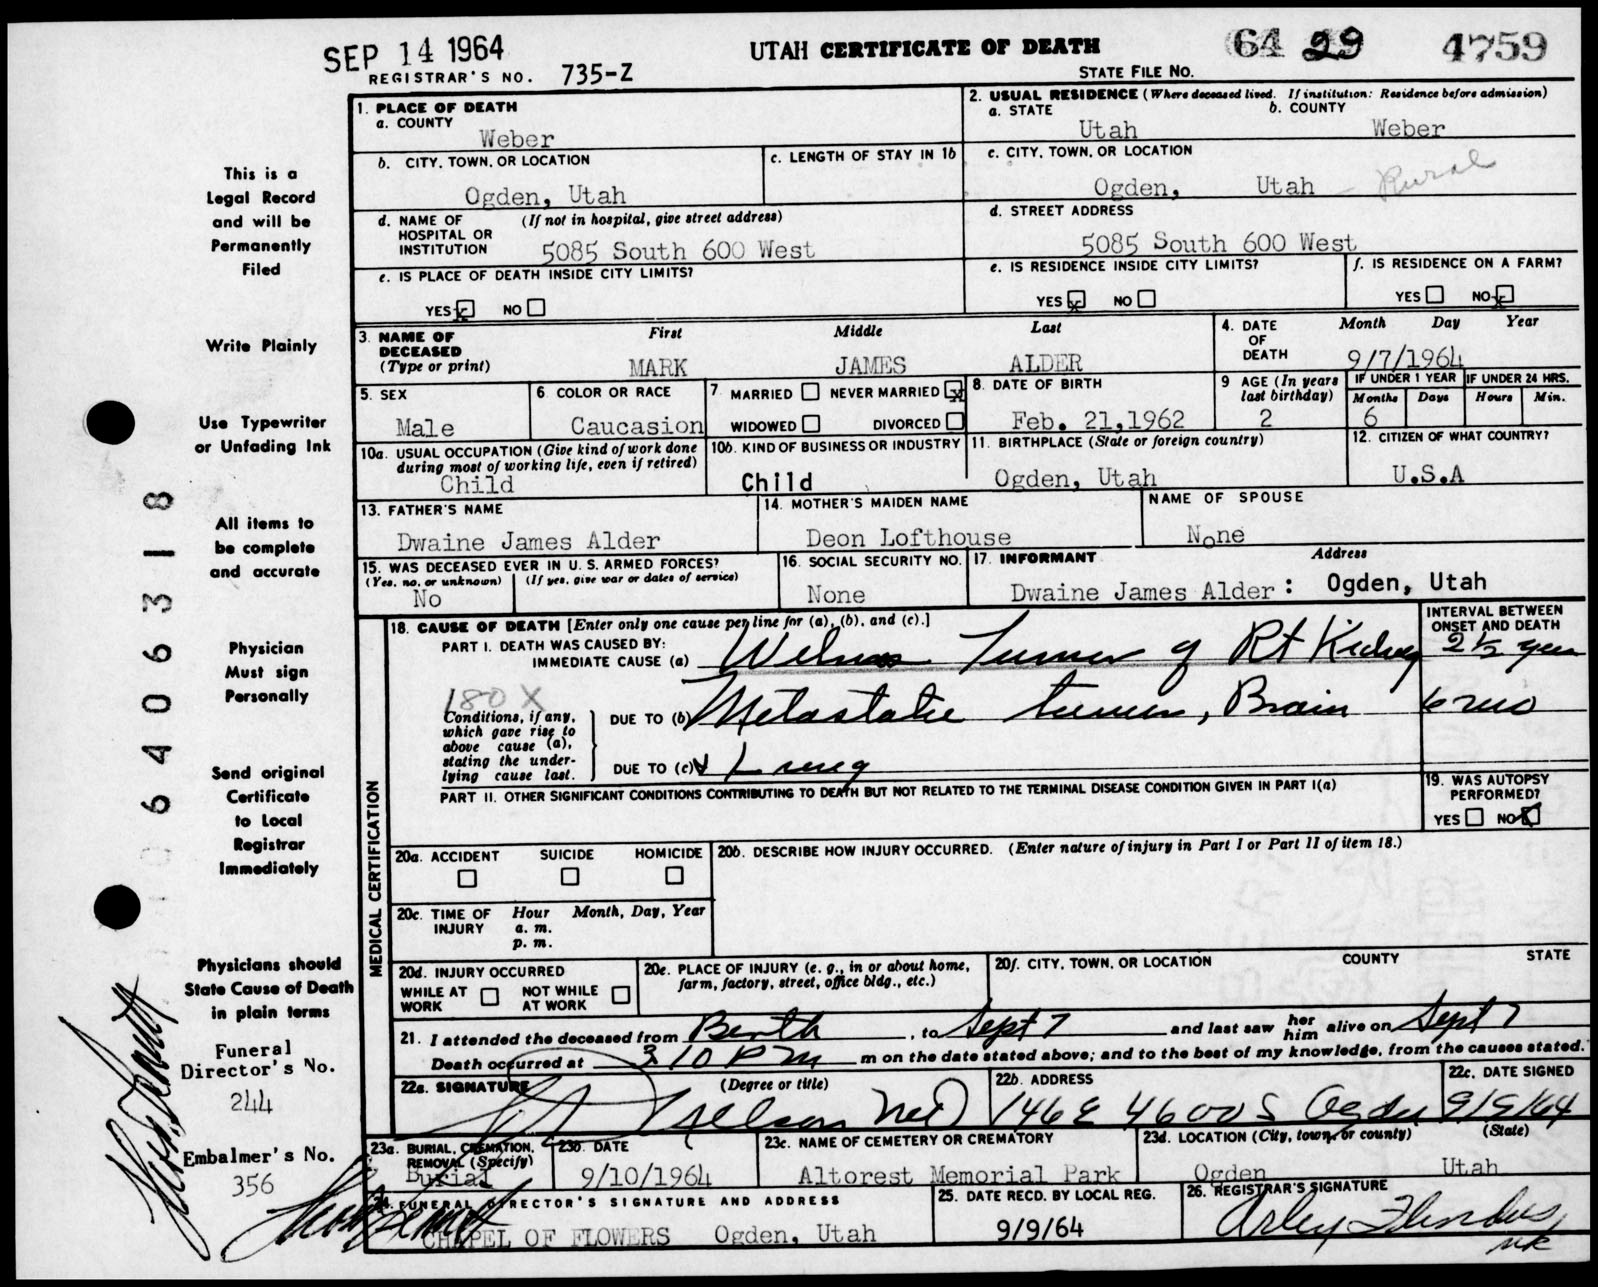 SEP 14 1964
UTAH CERTIFICATE OF DEATH
64 29 4759
REGISTRAR'S NO. 735-Z
STATE FILE NO.
This is a
Legal Record
and will be
Permanently
Filed
Write Plainly
Use Typewriter
or Unfading Ink
All items to
be complete
and accurate
Physician
Must sign
Personally
Send original
Certificate
to Local
Registrar
Immediately
Physicians should
State Cause of Death
in plain terms
Funeral
Director's No.
244
Embalmer's No.
356
06406318
1. PLACE OF DEATH
a. COUNTY
Weber
2. USUAL RESIDENCE (Where deceased lived. If institution: Residence before admission)
a. STATE b. COUNTY
Utah Weber
b. CITY, TOWN, OR LOCATION
Ogden, Utah
c. LENGTH OF STAY IN 1b
c. CITY, TOWN, OR LOCATION
Ogden, Utah - Rural
d. NAME OF HOSPITAL OR INSTITUTION (If not in hospital, give street address)
5085 South 600 West
d. STREET ADDRESS
5085 South 600 West
e. IS PLACE OF DEATH INSIDE CITY LIMITS?
YES x NO
e. IS RESIDENCE INSIDE CITY LIMITS?
YES x NO
f. IS RESIDENCE ON A FARM?
YES NO x
3. NAME OF DECEASED (Type or print)
First Middle Last
MARK JAMES ALDER
4. DATE OF DEATH
Month Day Year
9/7/1964
5. SEX
Male
6 COLOR OR RACE
Caucasion
7 MARRIED NEVER MARRIED x
WIDOWED DIVORCED
8. DATE OF BIRTH
Feb. 21,1962
9 AGE (In years last birthday)
2
IF UNDER 1 YEAR IF UNDER 24 HRS.
Months Days Hours Min.
6
10a. USUAL OCCUPATION (Give kind of work done during most of working life, even if retired)
Child
10b. KIND OF BUSINESS OR INDUSTRY
Child
11. BIRTHPLACE (State or foreign country)
Ogden, Utah
12. CITIZEN OF WHAT COUNTRY?
U.S.A
13. FATHER'S NAME
Dwaine James Alder
14. MOTHER'S MAIDEN NAME
Deon Lofthouse
NAME OF SPOUSE
None
15. WAS DECEASED EVER IN U. S. ARMED FORCES?
(Yes, no, or unknown) (If yes, give war or dates of service)
No
16. SOCIAL SECURITY NO.
None
17. INFORMANT Address
Dwaine James Alder : Ogden, Utah
MEDICAL CERTIFICATION
18. CAUSE OF DEATH [Enter only one cause per line for (a), (b), and (c).]
INTERVAL BETWEEN ONSET AND DEATH
PART I. DEATH WAS CAUSED BY:
IMMEDIATE CAUSE (a) Wilms Tumor of Rt Kidney 2 1/2 years
180 X
Conditions, if any, which gave rise to above cause (a), stating the underlying cause last.
DUE TO (b) Metastatic tumor, Brain 6 mo
DUE TO (c) & Lung
PART II. OTHER SIGNIFICANT CONDITIONS CONTRIBUTING TO DEATH BUT NOT RELATED TO THE TERMINAL DISEASE CONDITION GIVEN IN PART I(a)
19. WAS AUTOPSY PERFORMED?
YES NO x
20a. ACCIDENT SUICIDE HOMICIDE
20b. DESCRIBE HOW INJURY OCCURRED. (Enter nature of injury in Part I or Part II of item 18.)
20c. TIME OF INJURY Hour Month, Day, Year
a. m.
p. m.
20d. INJURY OCCURRED
WHILE AT WORK NOT WHILE AT WORK
20e. PLACE OF INJURY (e. g., in or about home, farm, factory, street, office bldg., etc.)
20f. CITY, TOWN, OR LOCATION COUNTY STATE
21. I attended the deceased from Birth, to Sept 7 and last saw her him alive on Sept 7
Death occurred at 3 10 P M m on the date stated above; and to the best of my knowledge, from the causes stated.
22a. SIGNATURE (Degree or title)
Nelson MD
22b. ADDRESS
146 E 4600 S Ogden
22c. DATE SIGNED
9/9/64
23a. BURIAL, CREMATION, REMOVAL (Specify)
Burial
23b. DATE
9/10/1964
23c. NAME OF CEMETERY OR CREMATORY
Altorest Memorial Park
23d. LOCATION (City, town, or county) (State)
Ogden Utah
24. FUNERAL DIRECTOR'S SIGNATURE AND ADDRESS
CHAPEL OF FLOWERS Ogden, Utah
25. DATE RECD. BY LOCAL REG.
9/9/64
26. REGISTRAR'S SIGNATURE
Arley Flinders
mk